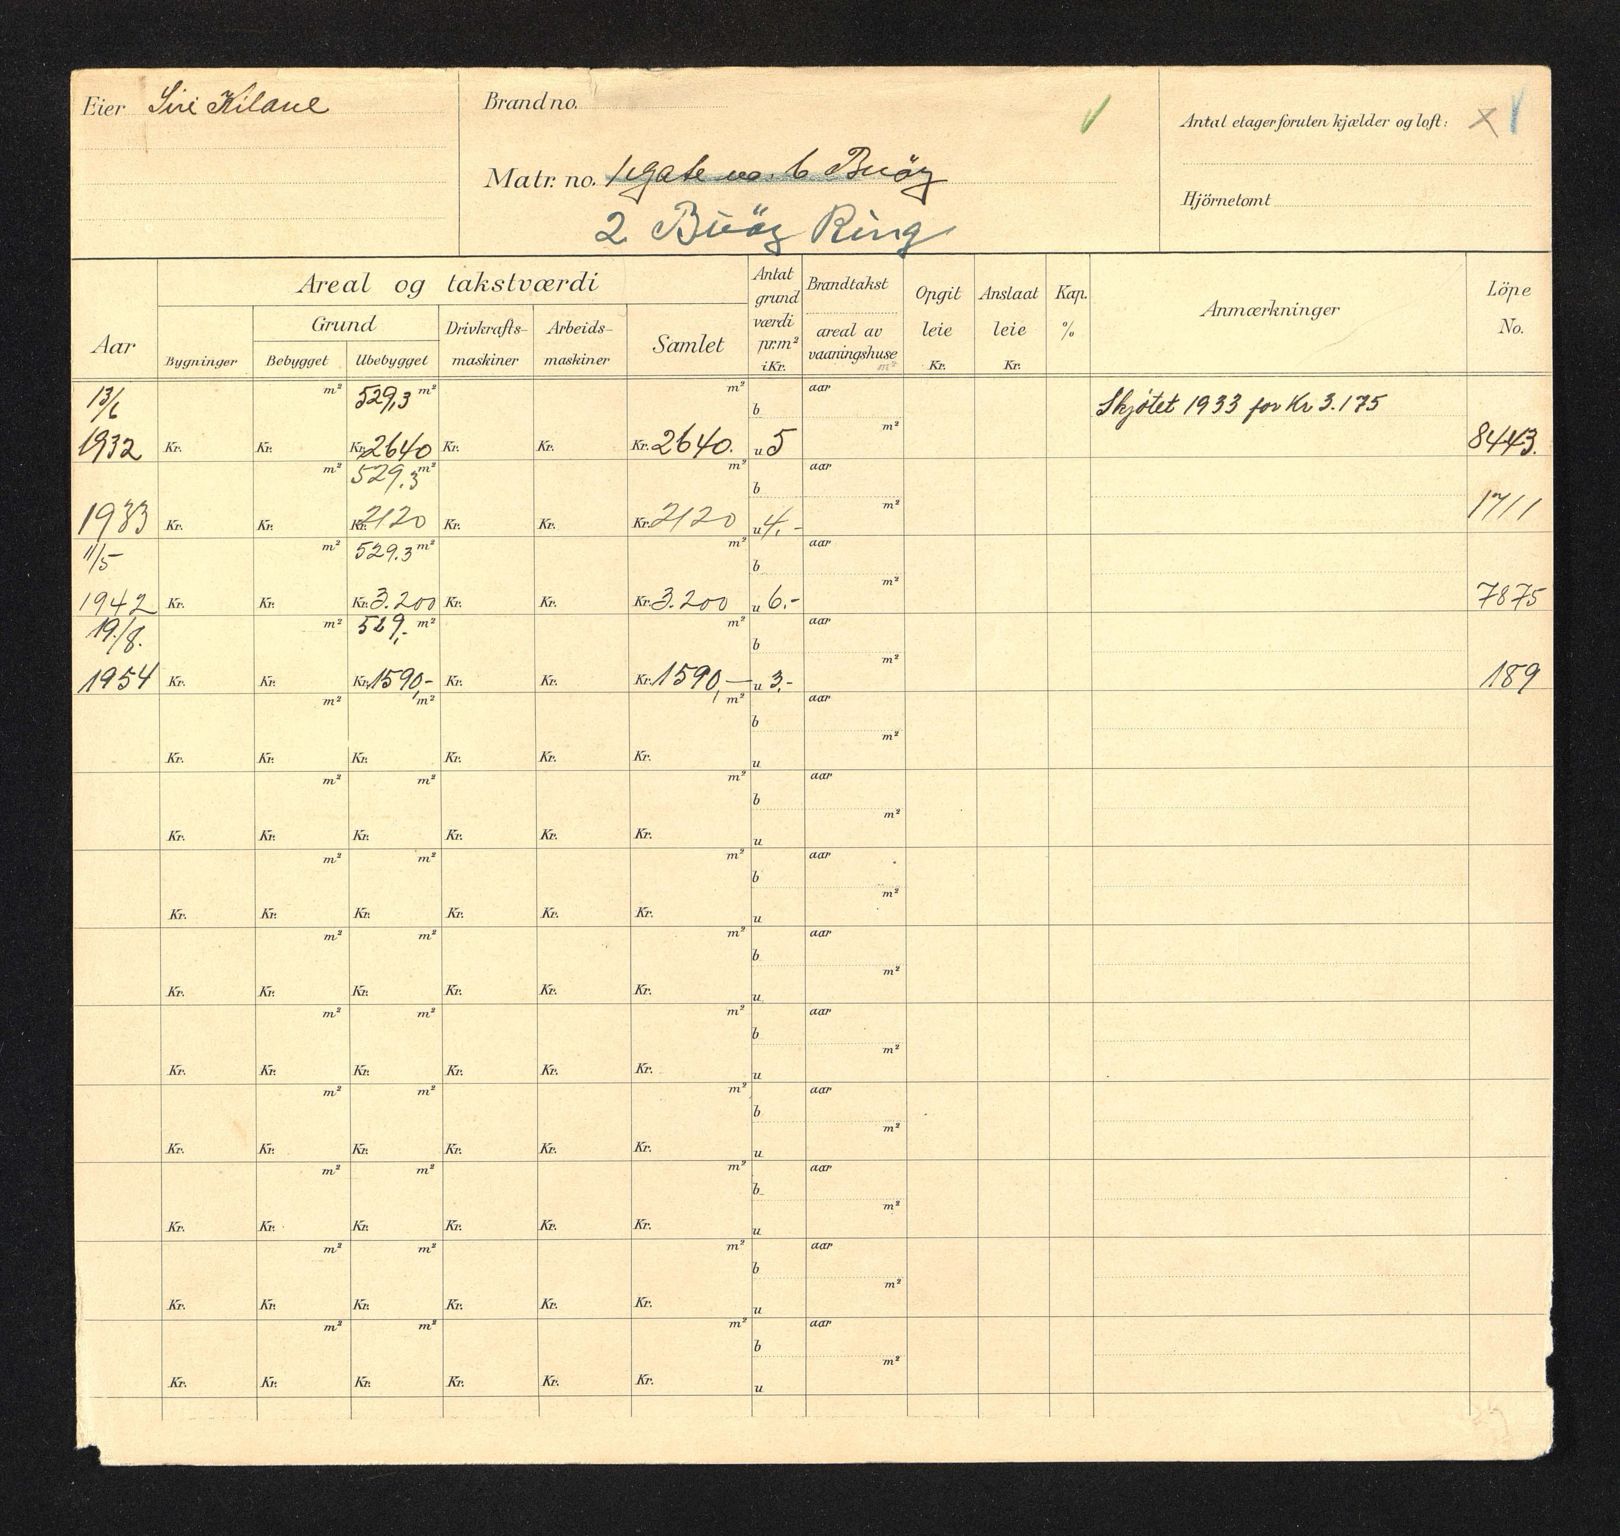 Eier Siri Kilane
Brand no.
Matr. no. 1 Gate no. 6 Buöy
2 Buöy Ring
Antal etager foruten kjælder og loft: x
Hjörnetomt
Aar
Areal og takstværdi
Bygninger
Grund
Bebygget Ubebygget
Drivkrafts-
maskiner
Arbeids-
maskiner
Samlet
Antat
grund
værdi
pr.m²
i Kr.
Brandtakst
areal av
vaaningshuse
m²
Opgit
leie
Kr.
Anslaat
leie
Kr.
Kap.
%
Anmærkninger
Löpe
No.
13/6 m² 529,3 m² m² b aar Skjøtet 1933 for Kr 3.175
1932 Kr. Kr. Kr. 2640 Kr. Kr. Kr. 2640. u 5 m² 8443.
m² 529.3 m² m² b aar
1933 Kr. Kr. Kr. 2120 Kr. Kr. Kr. 2120 u 4.- m² 1711
11/5 m² 529.3 m² m² b aar
1942 Kr. Kr. Kr. 3.200 Kr. Kr. Kr. 3.200 u 6.- m² 7875
19./8. m² 529,- m² m² b aar
1954 Kr. Kr. Kr. 1590,- Kr. Kr. Kr. 1590,— u 3,- m² 189
m² m² m² b aar
Kr. Kr. Kr. Kr. Kr. Kr. u m²
m² m² m² b aar
Kr. Kr. Kr. Kr. Kr. Kr. u m²
m² m² m² b aar
Kr. Kr. Kr. Kr. Kr. Kr. u m²
m² m² m² b aar
Kr. Kr. Kr. Kr. Kr. Kr. u m²
m² m² m² b aar
Kr. Kr. Kr. Kr. Kr. Kr. u m²
m² m² m² b aar
Kr. Kr. Kr. Kr. Kr. Kr. u m²
m² m² m² b aar
Kr. Kr. Kr. Kr. Kr. Kr. u m²
m² m² m² b aar
Kr. Kr. Kr. Kr. Kr. Kr. u m²
m² m² m² b aar
Kr. Kr. Kr. Kr. Kr. Kr. u m²